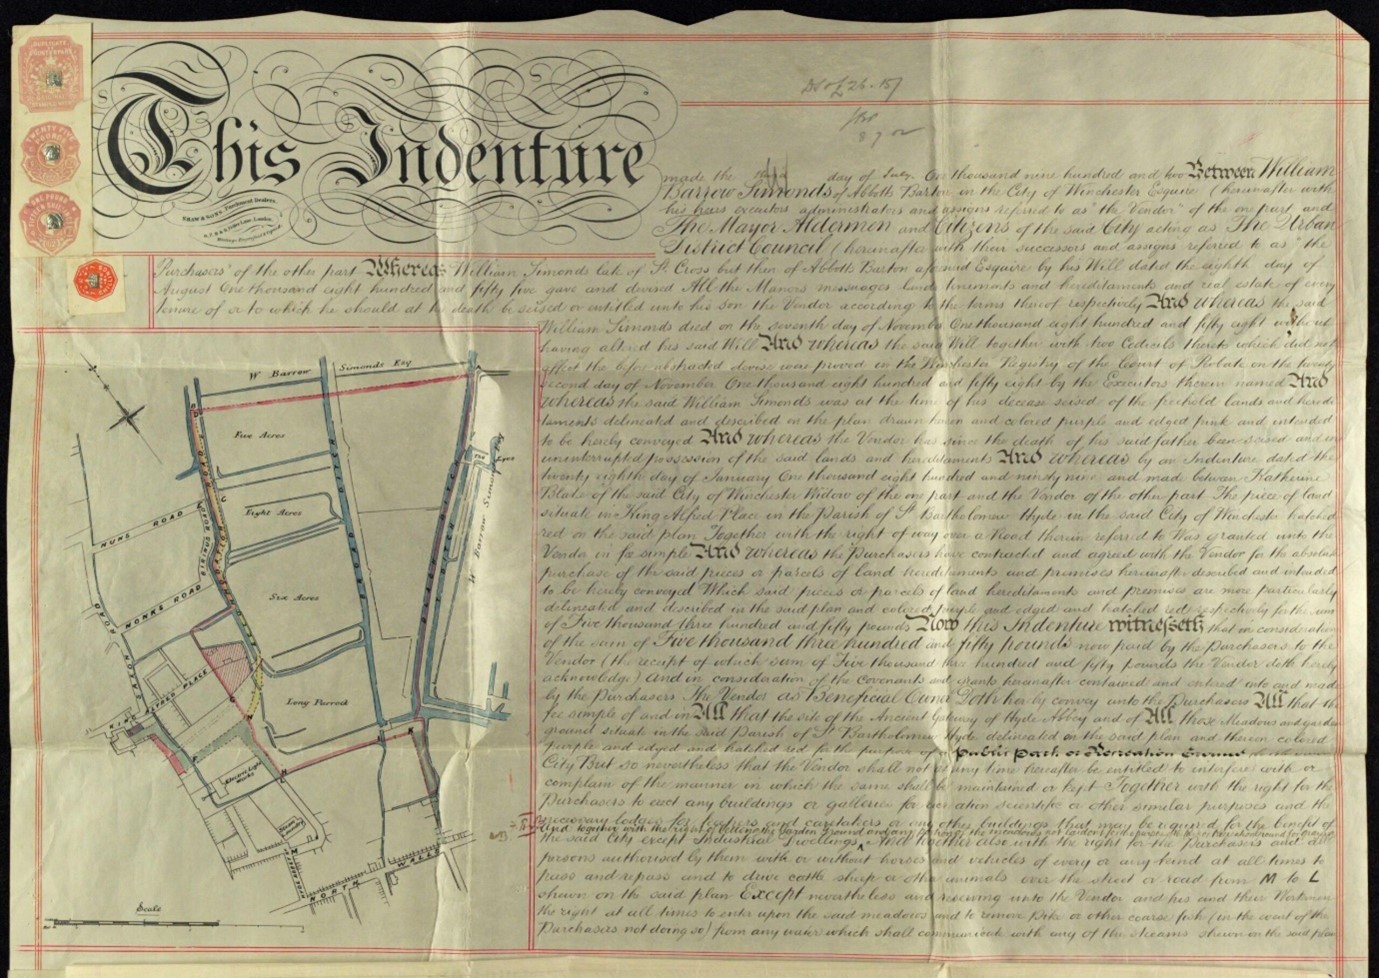 This Indenture
made the day of July One thousand nine hundred and two Between William
Barrow Simonds of Abbotts Barton in the City of Winchester Esquire (hereinafter with
his heirs executors administrators and assigns referred to as "the Vendor" of the one part and
The Mayor Aldermen and Citizens of the said City acting as The Urban
District Council (hereinafter with their successors and assigns referred to as "the
Purchasers" of the other part Whereas William Simonds late of St. Cross but then of Abbotts Barton aforesaid Esquire by his Will dated the eighth day of
August One thousand eight hundred and fifty five gave and devised All the Manors messuages lands tenements and hereditaments and real estate of every
tenure of or to which he should at his death be seised or entitled unto his son the Vendor according to the terms thereof respectively And whereas the said
William Simonds died on the seventh day of November One thousand eight hundred and fifty eight without
having altered his said Will And whereas the said Will together with two Codicils thereto which did not
affect the before abstracted devise were proved in the Winchester Registry of the Court of Probate on the twenty
second day of November One thousand eight hundred and fifty eight by the Executors therein named And
whereas the said William Simonds was at the time of his decease seised of the freehold lands and heredi
taments delineated and described on the plan drawn hereon and colored purple and edged pink and intended
to be hereby conveyed And whereas the Vendor has since the death of his said father been seised and in
uninterrupted possession of the said lands and hereditaments And whereas by an Indenture dated the
twenty eighth day of January One thousand eight hundred and ninety nine and made between Katherine
Blake of the said City of Winchester Widow of the one part and the Vendor of the other part The piece of land
situate in King Alfred Place in the Parish of St. Bartholomew Hyde in the said City of Winchester hatched
red on the said plan Together with the right of way over a Road therein referred to Was granted unto the
Vendor in fee simple And whereas the Purchasers have contracted and agreed with the Vendor for the absolute
purchase of the said pieces or parcels of land hereditaments and premises hereinafter described and intended
to be hereby conveyed Which said pieces or parcels of land hereditaments and premises are more particularly
delineated and described in the said plan and colored purple and edged and hatched red respectively for the sum
of Five thousand three hundred and fifty pounds Now this Indenture witnesseth that in consideration
of the sum of Five thousand three hundred and fifty pounds now paid by the Purchasers to the
Vendor (the receipt of which sum of Five thousand three hundred and fifty pounds the Vendor doth hereby
acknowledge) And in consideration of the Covenants and grants hereinafter contained and entered into and made
by the Purchasers The Vendor as Beneficial Owner Doth hereby convey unto the Purchasers All that the
fee simple of and in All that the site of the Ancient Gateway of Hyde Abbey and of All those Meadows and garden
ground situate in the said Parish of St Bartholomew Hyde delineated on the said plan and therein colored
purple and edged and hatched red for the purpose of a public park or Recreation Ground
City But so nevertheless that the Vendor shall not at any time hereafter be entitled to interfere with or
complain of the manner in which the same shall be maintained or kept Together with the right for the
Purchasers to erect any buildings or galleries for recreation scientific or other similar purposes and the
necessary lodges for keepers and caretakers or any other buildings that may be required for the benefit of
the said City except Industrial Dwellings And together also with the right for the Purchasers and all
persons authorised by them with or without horses and vehicles of every or any kind at all times to
pass and repass and to drive cattle sheep or other animals over the street or road from M to L
shewn on the said plan Except nevertheless and reserving unto the Vendor and his and their Workmen
the right at all times to enter upon the said meadows and to remove Pike or other coarse fish (in the event of the
Purchasers not doing so) from any water which shall communicate with any of the streams shewn on the said plan
W Barrow Simonds Esq.
Five Acres
Eight Acres
Six Acres
Long Parrock
NUNS ROAD
MONKS ROAD
SAXON ROAD
KING ALFRED PLACE
W Barrow Simonds Esq
Electric Light Works
Steam Laundry
NORTH WALLS
Scale